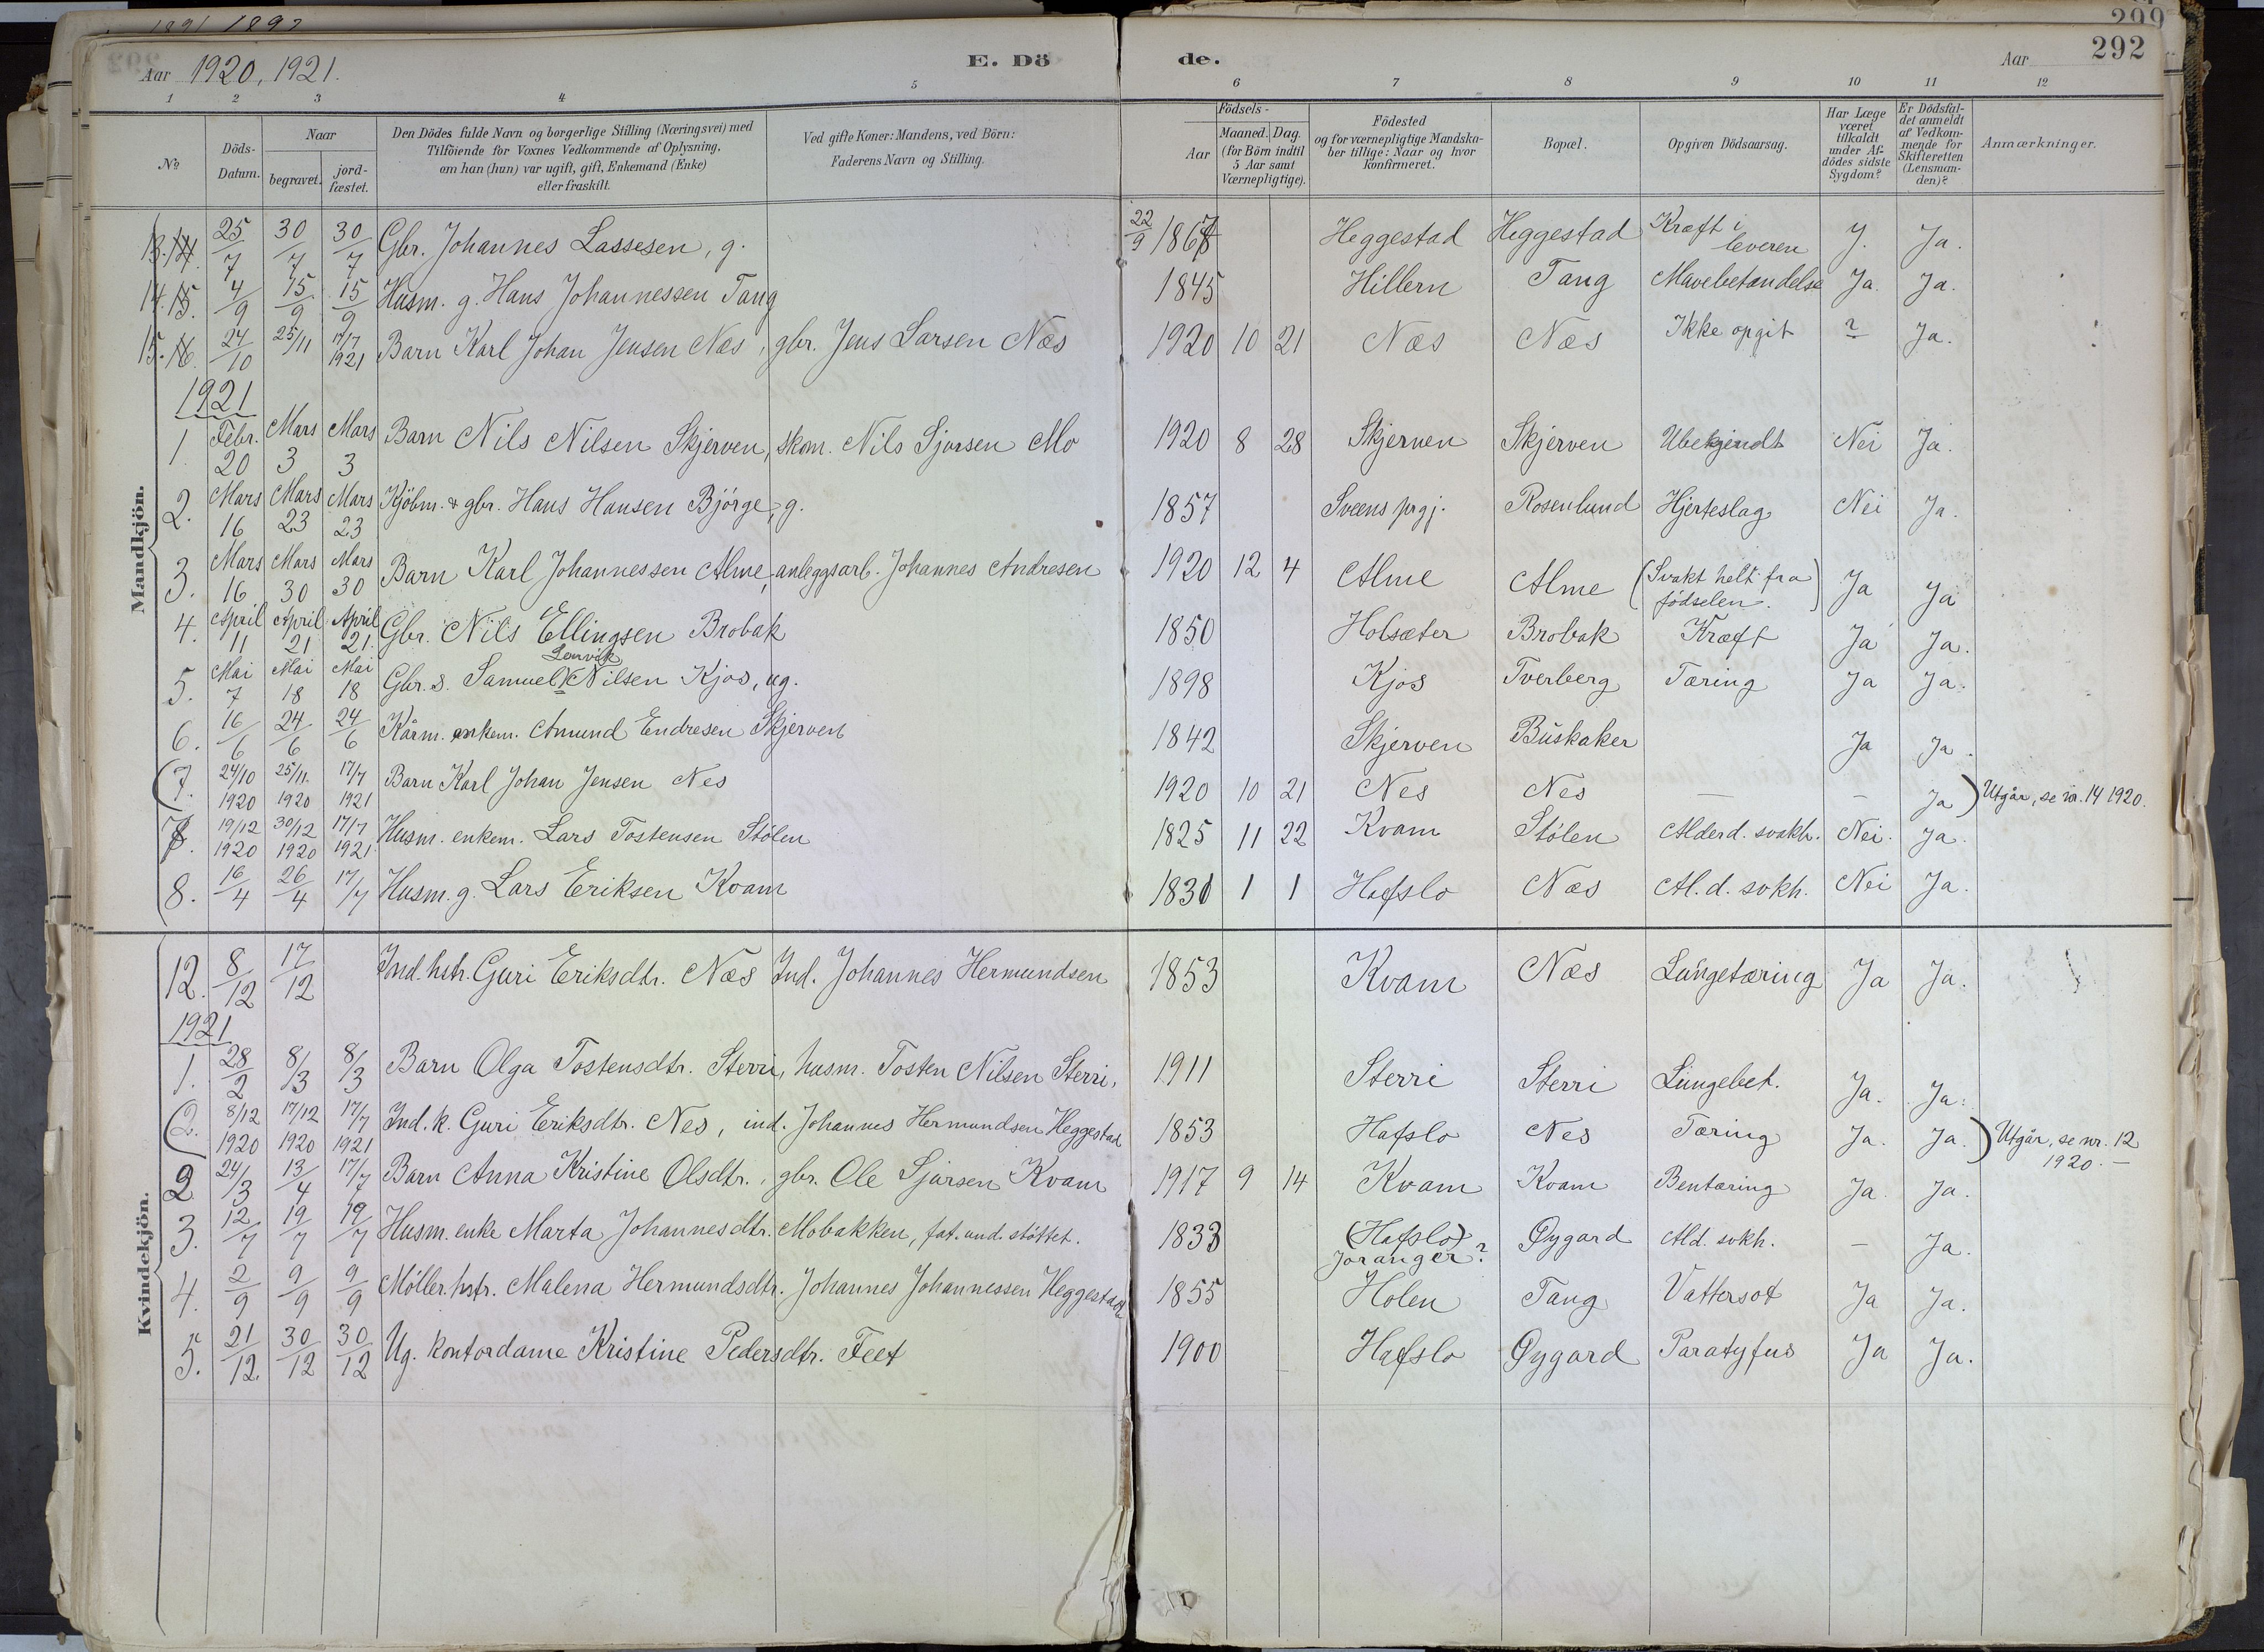 1891 1892
299
Aar 1920, 1921. E. Dö de. Aar 292
1 2 3 4 5 6 7 8 9 10 11 12
No. Döds-Datum. Naar begravet. jord-fæstet. Den Dödes fulde Navn og borgerlige Stilling (Næringsvei) med Tilföiende for Voxnes Vedkommende af Oplysning, om han (hun) var ugift, gift, Enkemand (Enke) eller fraskilt. Ved gifte Koner: Mandens, ved Börn: Faderens Navn og Stilling. Födsels- Aar Maaned. Dag. (for Börn indtil 5 Aar samt Værnepligtige). Födested og for værnepligtige Mandskaber tillige: Naar og hvor Konfirmeret. Bopæl. Opgiven Dödsaarsag. Har Læge været tilkaldt under Afdödes sidste Sygdom? Er Dödsfaldet anmeldt af Vedkommende for Skifteretten (Lensmanden)? Anmærkninger.
Mandkjön.
13. 14. 25/7 30/7 30/7 Gbr. Johannes Lassesen, g. 22/9 1867 Heggestad Heggestad Kræft i leveren J. Ja.
14. 15. 4/9 15/9 15/9 Husm. g. Hans Johannessen Tang 1845 Hillern Tang Mavebetændelse Ja. Ja.
15. 16. 24/10 25/11 17/7 1921 Barn Karl Johan Jensen Næs, gbr. Jens Larsen Næs 1920 10 21 Næs Næs Ikke opgit ? Ja.
1921
1. Febr. 20 Mars 3 Mars 3 Barn Nils Nilsen Skjerven, skom. Nils Sjursen Mo 1920 8 28 Skjerven Skjerven Ubekjendt Nei Ja.
2. Mars 16 Mars 23 Mars 23 Kjöbm. & gbr. Hans Hansen Bjórge, g. 1857 Sveens prgj. Rosenlund Hjerteslag Nei Ja.
3. Mars 16 Mars 30 Mars 30 Barn Karl Johannessen Alme, anleggsarb. Johannes Andresen 1920 12 4 Alme Alme (Svakt helt fra fódselen.) Ja Ja
4. April 11 April 21 April 21. Gbr. Nils Ellingsen Brobak 1850 Holsæter Brobak Kræft Ja Ja.
5. Mai 7 Mai 18 Mai 18 Gbr. s. Samuel Nilsen Kjos, ug. 1898 Kjos Tverberg Tæring Ja Ja.
6. 16/6 24/6 24/6 Kårm. enkem. Amund Endresen Skjerven 1842 Skjerven Buskaker Ja Ja.
(7. 24/10 1920 25/11. 1920 17/7 1921 Barn Karl Johan Jensen Nes 1920 10 21 Nes Nes — — Ja) Utgår, se nr. 14 1920.
7. 19/12 1920 30/12 1920 17/7 1921. Husm. enkem. Lars Tostensen Stólen 1825 11 22 Kvam Stólen Alderd. svakh. Nei. Ja.
8. 16/4 26/4 17/7 Husm. g. Lars Eriksen Kvam 1831 1 1 Hafslo Næs Al. d. svkh. Nei Ja.
Kvindekjön.
12. 8/12 17/12 Ind. hstr. Guri Eriksdtr. Næs Ind. Johannes Hermundsen 1853 Kvam Næs Lungetæring Ja Ja.
1921
1. 28/2 8/3 8/3 Barn Olga Tostensdtr. Sterri, husm. Tosten Nilsen Sterri, 1911 Sterri Sterri Lungebet. Ja. Ja.
(2. 8/12 1920 17/12 1920 17/7 1921 Ind. k. Guri Eriksdtr. Nes, ind. Johannes Hermundsen Heggestad 1853 Hafslo Nes Tæring Ja. Ja.) Utgår, se nr. 12 1920.—
2 24/3 13/4 17/7 Barn Anna Kristine Olsdtr., gbr. Ole Sjursen Kvam 1917 9 14 Kvam Kvam Bentæring Ja. Ja.
3. 12/7 19/7 19/7 Husm. enke Marta Johannesdtr. Mobakken, fat. und. stóttet. 1833 (Hafslo) Joranger? Øygard Ald. svkh. — Ja.
4. 2/9 9/9 9/9 Móller. hstr. Malena Hermundsdtr. Johannes Johannessen Heggestad 1855 Holen Tang Vattersot Ja Ja.
5. 21/12. 30/12 30/12 Ug. kontordame Kristine Pedersdtr. Feet 1900 Hafslo Øygard Paratyfus Ja Ja.